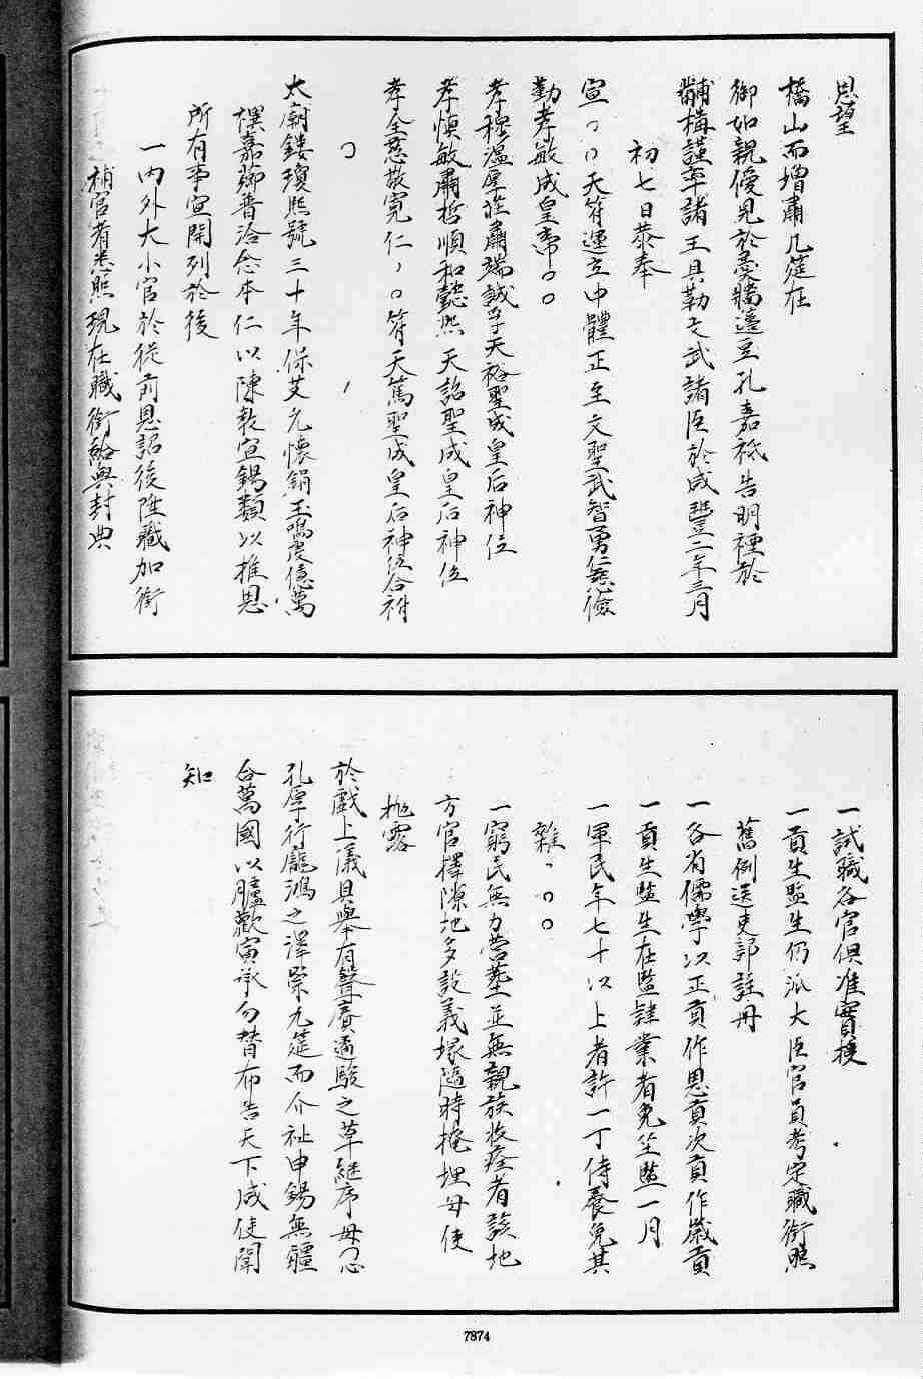 思望
橋山而增肅几筵在
御如親僾見於羹牆籩豆孔嘉祇告明禋於
黼構謹率諸王貝勒文武諸臣於咸豐二年三月
初七日恭奉
宣〻〇天符運立中體正至文聖武智勇仁慈儉
勤孝敏成皇帝〇〇
孝穆溫厚莊肅端誠孚天裕聖成皇后神位
孝慎敏肅哲順和懿熙天詒聖成皇后神位
孝全慈敬寬仁〻〇符天篤聖成皇后神位合祔
〇
太廟鏤瓊熙號三十年保艾元懷鋗玉鳴虔億萬
禩嘉薌普洽念本仁以陳教宣錫類以推恩
所有事宜開列於後
一內外大小官於從前恩詔後陞職加銜
補官者悉照現在職銜給與封典
一試職各官俱准實授
一貢生監生仍派大臣官員考定職銜照
舊例送吏部註冊
一各省儒學以正貢作恩貢次貢作歲貢
一貢生監生在監肄業者免坐監一月
一軍民年七十以上者許一丁侍養免其
雜〻〇〇
一窮民無力營葬並無親族收瘞者該地
方官擇隙地多設義塚隨時掩埋毋使
拋露
於戲上儀具舉有聲賡遹駿之章繼序毋忘
孔厚行龐鴻之澤緊元筵而介祉申錫無疆
合萬國以臚歡寅承勿替布告天下咸使聞
知
7874